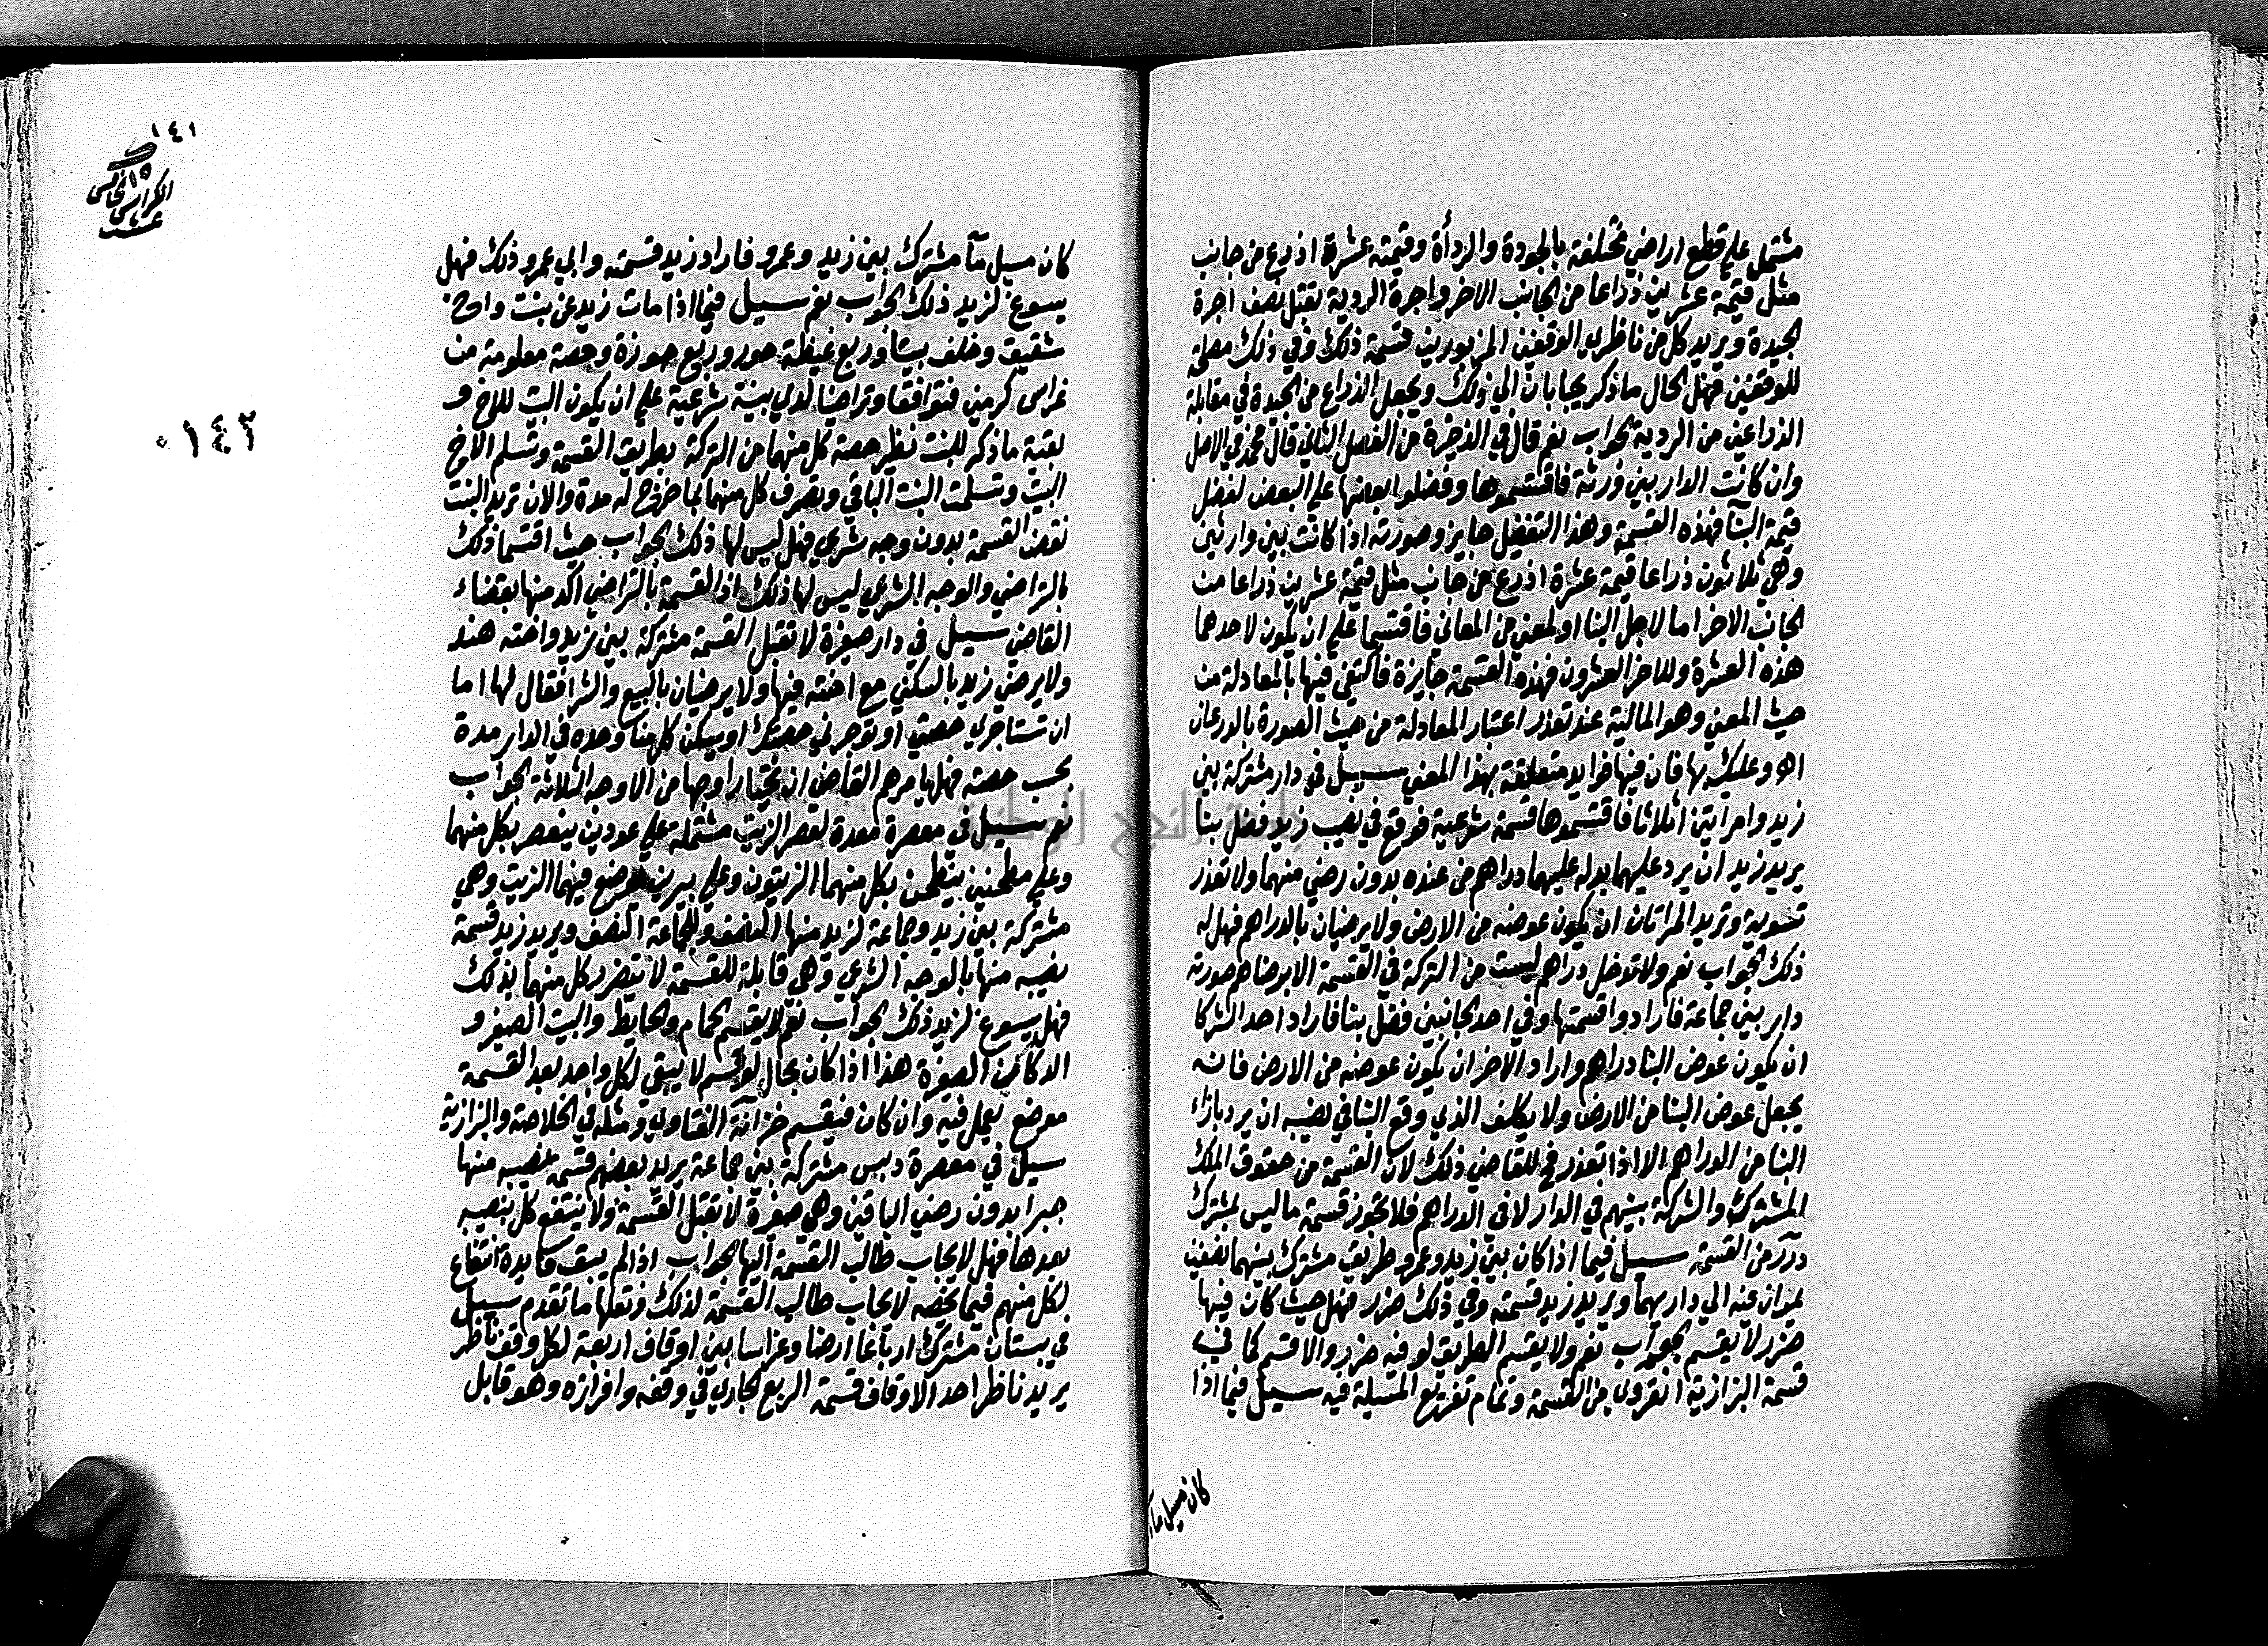 مشتمل على قطع اراضي مختلفة بالجودة والردأة وقيمة عشرة اذرع من جانب
مثل قيمة عشرين ذراعا من الجانب الاخر واجرة الردية تقبل نصف اجرة
الجيدة ويريد كل من ناظري الوقفين المزبورين قسمة ذلك وفي ذلك مصلحة
للوقفين فهل الحال ما ذكر يجابان الى ذلك ويجعل الذراع من الجيدة في مقابلة
الذراعين من الردية الجواب نعم قال في الذخيرة من الفصل الثاني قال محمد في الاصل
وان كانت الدار بين ورثة فاقتسموها وفضلوا بعضها على البعض لفضل
قيمة البنآ فهذه القسمة وهذا التفضيل جايز وصورته اذا كانت بين وارثين
وهي ثلاثون ذراعا قيمة عشرة اذرع من جانب مثل قيمة عشرين ذراعا من
الجانب الاخر اما لاجل البنا او لمعنى من المعاني فاقتسما على ان يكون لاحدهما
هذه العشرة وللاخر العشرون فهذه القسمة جايزة فاكتفي فيها بالمعادلة من
حيث المعنى وهو المالية عند تعذر اعتبار المعادلة من حيث الصورة بالذرعان
اهـ وعليك بها فان فيها فوايد متعلقة بهذا المعنى سيل في دار مشتركة بين
زيد وامراتين اثلاثا فاقتسموها قسمة شرعية فوقع في نصيب زيد فضل بنا
يريد زيد ان يرد عليهما بدله عليهما دراهم من عنده بدون رضي منهما ولا تعذر
تسوية وتريد المراتان ان يكون عوضه من الارض ولا يرضيان بالدراهم فهل له
ذلك الجواب نعم ولا تدخل دراهم ليست من التركة في القسمة الا برضاهم صورته
دار بين جماعة فارادوا قسمتها وفي احد الجانبين فضل بنا فاراد احد الشركا
ان يكون عوض البنا دراهم واراد الاخر ان يكون عوضه من الارض فانه
يجعل عوض البنا من الارض ولا يكلف الذي وقع البنا في نصيبه ان يرد بازاء
البنا من الدراهم الا اذا تعذر فح للقاضي ذلك لان القسمة من حقوق الملك
المشترك والشركة بينهم في الدار لا في الدراهم فلا تجوز قسمة ما ليس بمشترك
درر من القسمة سيل فيما اذا كان بين زيد وعمرو طريق مشترك بينهما نصفين
يمران عنه الى داريهما ويريد زيد قسمته وفي ذلك ضرر فهل حيث كان فيها
ضرر لا يقسم الجواب نعم ولا يقسم الطريق لو فيه ضرر والا قسم كما في
قسمة البزازية انقروي من القسمة وتمام تفريع المسيلة فيه سيل فيما اذا
كان مسيل مآ
١٤١
١٥
الكراس الخامس
عشر
١٤٢
كان مسيل مآ مشترك بين زيد وعمرو فاراد زيد قسمته وابى عمرو ذلك فهل
يسوغ لزيد ذلك الجواب نعم سيل فيما اذا مات زيد عن بنت واخ
شقيق وخلف بيتا وربع غيظة حور وربع حوزة وحصة معلومة من
غراس كرمين فتوافقا وتراضيا لدى بينة شرعية على ان يكون البيت للاخ و
بقية ما ذكر للبنت نظير حصة كل منهما من التركة بطريق القسمة وتسلم الاخ
البيت وتسلمت البنت الباقي وتصرف كل منهما بما خرج له مدة والان تريد البنت
نقض القسمة بدون وجه شرعي فهل ليس لها ذلك الجواب حيث اقتسما ذلك
بالتراضي والوجه الشرعي ليس لها ذلك اذ القسمة بالتراضي اكد منها بقضاء
القاضي سيل في دار صغيرة لا تقبل القسمة مشتركة بين زيد واخته هند
ولا يرضي زيد بالسكني مع اخته فيها ولا يرضيان بالبيع والشرا فقال لها اما
ان تستاجري حصتي او توجرني حصتك او يسكن كل منا وحده في الدار مدة
بحسب حصته فهل يامرهم القاضي ان يختاروا وجها من الاوجه الثلاثة الجواب
نعم سيل في معصرة معدة لعصر الزيت مشتملة على عودين ينعصر بكل منهما
وعلى مطحنين ينطحن بكل منهما الزيتون وعلى بيرين يوضع فيهما الزيت وهي
مشتركة بين زيد وجماعة لزيد منها النصف وللجماعة النصف ويريد زيد قسمة
نصيبه منها بالوجه الشرعي وهي قابلة للقسمة لا يتضرر كل منهما بذلك
فهل يسوغ لزيد ذلك الجواب نعم لا يقسم الحمام والحايط والبيت الصغير و
الدكان الصغيرة هذا اذا كان بحال لو قسم لا يبقى لكل واحد بعد القسمة
موضع يعمل فيه وان كان فيقسم خزانة الفتاوى ومثله في الخلاصة والبزازية
سيل في معصرة دبس مشتركة بين جماعة يريد بعضهم قسمة نصيبه منها
جبرا بدون رضي الباقين وهي صغيرة لا تقبل القسمة ولا ينتفع كل بنصيبه
بعدها فهل لا يجاب طالب القسمة اليها الجواب اذا لم يبق فايدة انتفاع
لكل منهم فيما يخصه لا يجاب طالب القسمة لذلك ونقلها ما تقدم سيل
في بستان مشترك ارباعا ارضا وغراسا بين اوقاف اربعة لكل وقف ناظر
يريد ناظر احد الاوقاف قسمة الربع الجاري في وقفه وافرازه وهو قابل